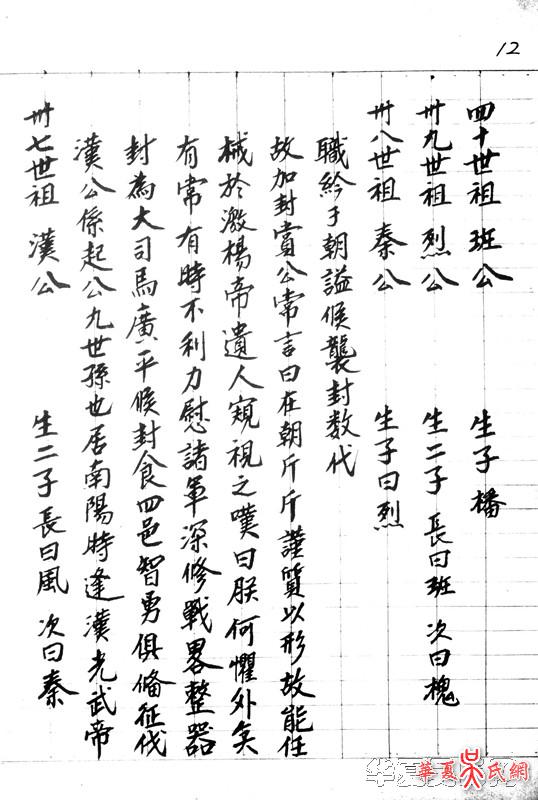 12
卅七世祖 漢公 生二子 長曰風 次曰秦
漢公係起公九世孫也居南陽時逢漢光武帝
封為大司馬廣平候封食四邑智勇俱備征伐
有常有時不利力慰諸軍深修戰畧整器
械於激楊帝遺人窺視之嘆曰朕何懼外矣
故加封賞公常言曰在朝斤斤謹質以形故能任
職紟于朝謚候襲封数代
卅八世祖 秦公 生子曰烈
卅九世祖 烈公 生二子 長曰班 次曰槐
四十世祖 班公 生子橋
華夏吴氏網